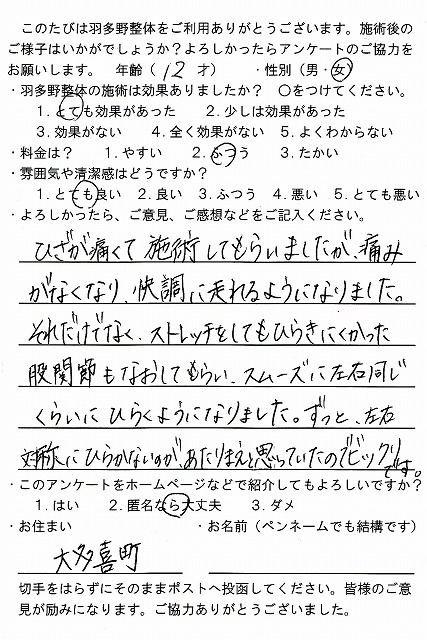 このたびは羽多野整体をご利用ありがとうございます。施術後の
ご様子はいかがでしょうか？よろしかったらアンケートのご協力を
お願いします。 年齢（ 12 才） ・性別（男・女）
・羽多野整体の施術は効果ありましたか？ ○をつけてください。
1.とても効果があった 2.少しは効果があった
3.効果がない 4.全く効果がない 5.よくわからない
・料金は？ 1.やすい 2.ふつう 3.たかい
・雰囲気や清潔感はどうですか？
1.とても良い 2.良い 3.ふつう 4.悪い 5.とても悪い
・よろしかったら、ご意見、ご感想などをご記入ください。
ひざが痛くて施術してもらいましたが、痛み
がなくなり、快調に走れるようになりました。
それだけでなく、ストレッチをしてもひらきにくかった
股関節もなおしてもらい、スムーズに左右同じ
くらいにひらくようになりました。ずっと、左右
対称にひらかないのが、あたりまえと思っていたのでビックリです。
・このアンケートをホームページなどで紹介してもよろしいですか？
1.はい 2.匿名なら大丈夫 3.ダメ
・お住まい ・お名前（ペンネームでも結構です）
大多喜町
切手をはらずにそのままポストへ投函してください。皆様のご意
見が励みになります。ご協力ありがとうございました。